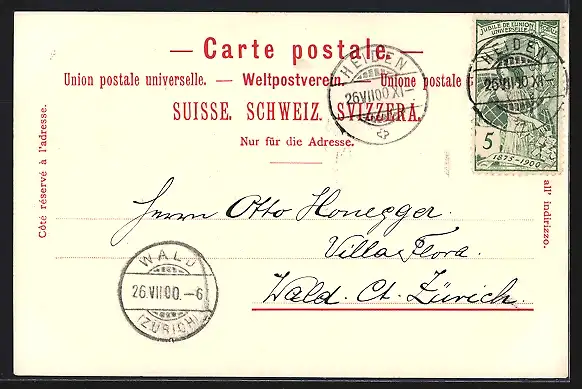 — Carte postale. —
Union postale universelle. — Weltpostverein. — Unione postale
SUISSE. SCHWEIZ. SVIZZERA.
Nur für die Adresse.
Côté réservé à l'adresse.
all' indirizzo.
JUBILÉ DE L'UNION
UNIVERSELLE
5
1875-1900
HEIDEN
26 VII 00 XI —
HEIDEN
26 VII 00 XI —
Herrn Otto Honegger.
Villa Flora.
Wald. Ct. Zürich.
WALD
26. VII 00. – 6
(ZÜRICH)